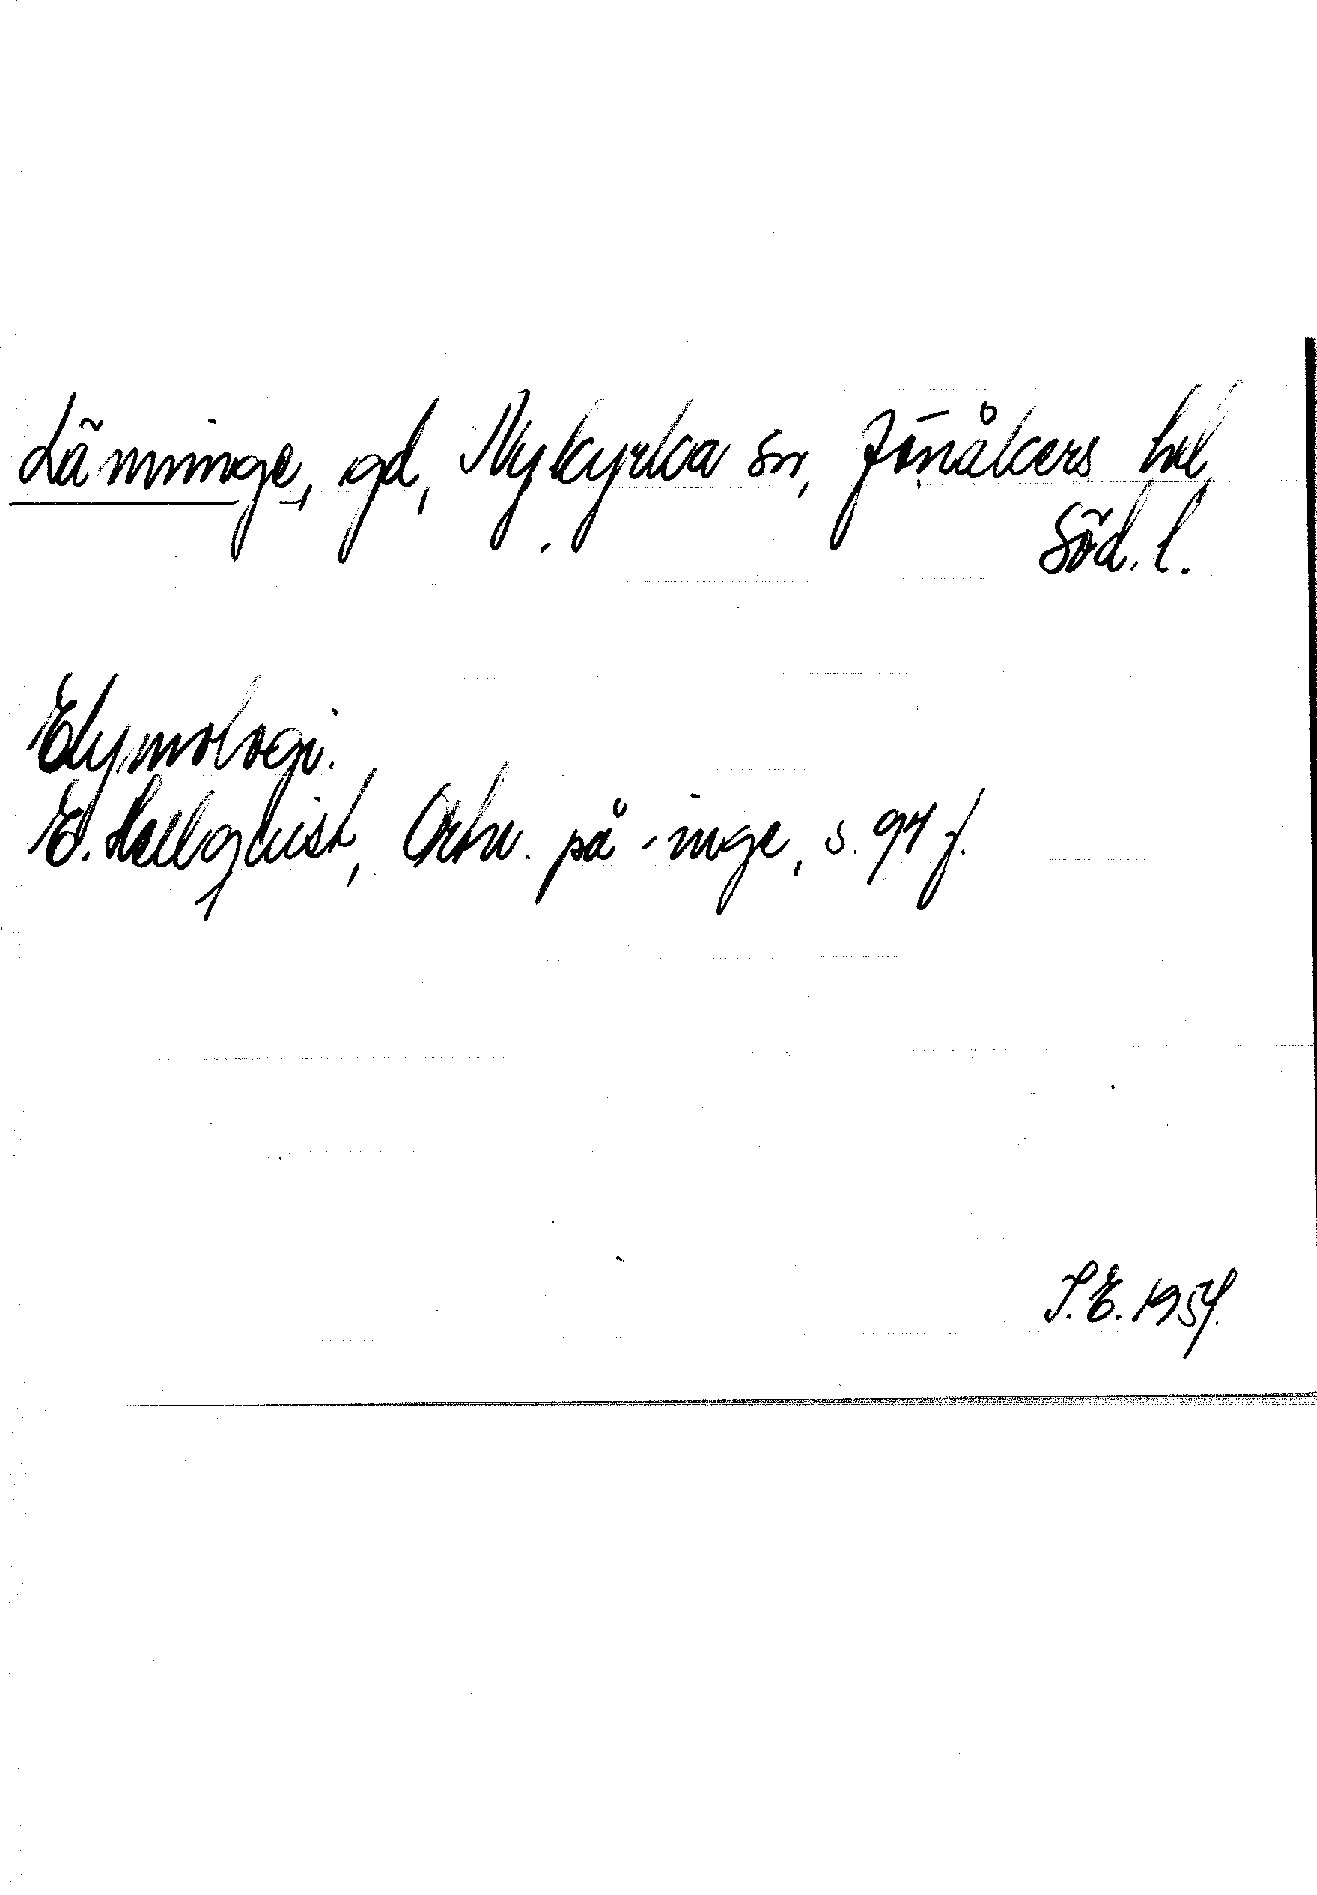 Lämninge, gd, Nykyrka sn, Jönåkers hd,
Söd. l.
Etymologi.
E. Hellqvist, Ortn. på -inge, s. 94 f.
S.E. 1954.